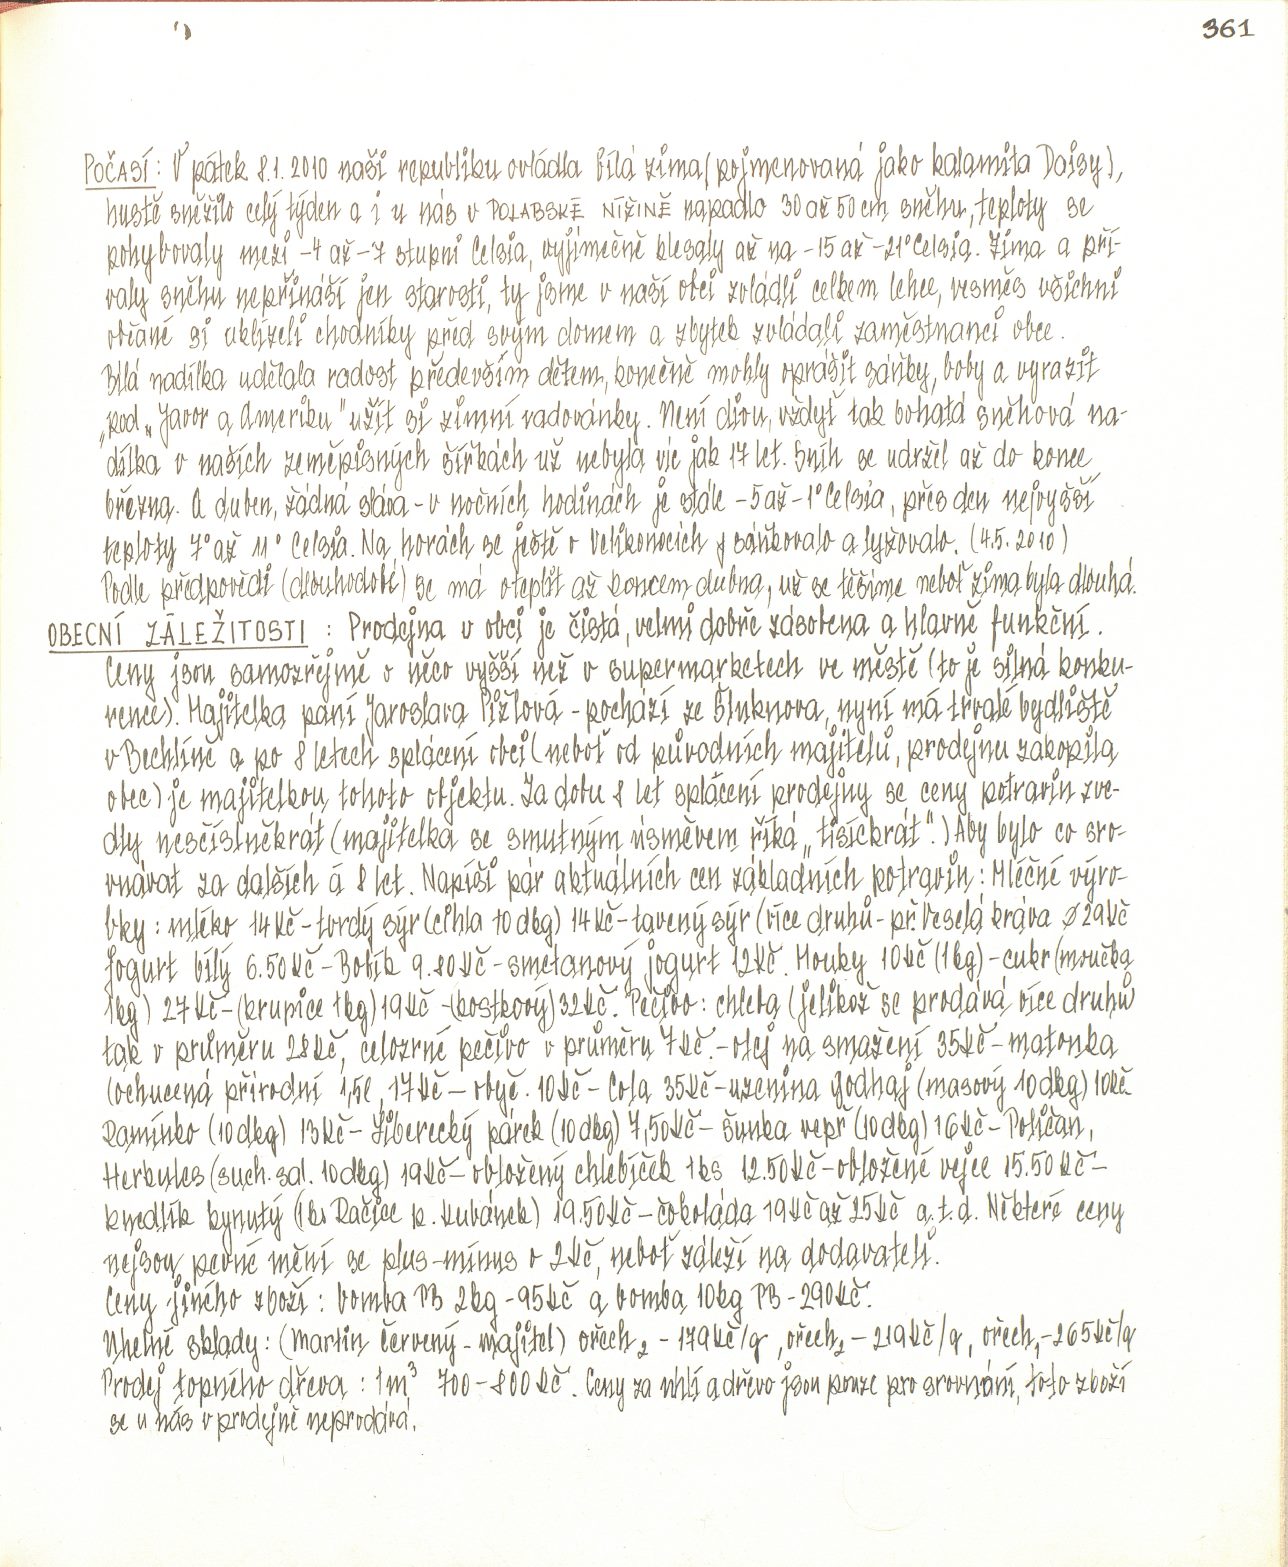 361
POČASÍ: V pátek 8.1.2010 naši republiku ovládla bílá zima (pojmenovaná jako kalamita Daisy),
hustě sněžilo celý týden a i u nás v POLABSKÉ NÍŽINĚ napadlo 30 až 50 cm sněhu, teploty se
pohybovaly mezi -4 až -7 stupni Celsia, vyjímečně klesaly až na -15 až -21° Celsia. Zima a pří-
valy sněhu nepřináší jen starosti, ty jsme v naší obci zvládli celkem lehce, vesměs všichni
občané si uklízeli chodníky před svým domem a zbytek zvládali zaměstnanci obce.
Bílá nadílka udělala radost především dětem, konečně mohly oprášit sáňky, boby a vyrazit
„pod „Javor a Ameriku" užít si zimní radovánky. Není divu, vždyť tak bohatá sněhová na-
dílka v našich zeměpisných šířkách už nebyla víc jak 17 let. Sníh se udržel až do konce
března. A duben, žádná sláva - v nočních hodinách je stále -5 až -1° Celsia, přes den nejvyšší
teploty 7° až 11° Celsia. Na horách se ještě o Velikonocích sáňkovalo a lyžovalo. (4.5. 2010)
Podle předpovědi (dlouhodobé) se má oteplit až koncem dubna, už se těšíme neboť zima byla dlouhá.
OBECNÍ ZÁLEŽITOSTI : Prodejna v obci je čistá, velmi dobře zásobena a hlavně funkční.
Ceny jsou samozřejmě o něco vyšší než v supermarketech ve městě (to je silná konku-
rence). Majitelka paní Jaroslava Pížlová - pochází ze Šluknova, nyní má trvalé bydliště
v Bechlíně a po 8 letech splácení obci (neboť od původních majitelů, prodejnu zakoupila
obec) je majitelkou tohoto objektu. Za dobu 8 let splácení prodejny se ceny potravin zve-
dly nesčíslněkrát (majitelka se smutným úsměvem říká „tisíckrát".) Aby bylo co sro-
vnávat za dalších á 8 let. Napíši pár aktuálních cen základních potravin: Mléčné výro-
bky: mléko 14 Kč - tvrdý sýr (cihla 10 dkg) 14 Kč - tavený sýr (více druhů - př. Veselá kráva ø 29 Kč
Jogurt bílý 6.50 Kč - Bobík 9.80 Kč - smetanový jogurt 12 Kč. Mouky 10 Kč (1kg) - cukr (moučka
1kg) 27 Kč - (krupice 1kg) 19 Kč - (kostkový) 32 Kč. Pečivo: chleba (jelikož se prodává více druhů
tak v průměru 28 Kč, celozrné pečivo v průměru 7 Kč. - olej na smažení 35 Kč - matonka
(ochucená přírodní 1,5l, 17 Kč - obyč. 10 Kč - Cola 35 Kč - uzenina Gothaj (masový 10 dkg) 10 Kč
Ramínko (10 dkg) 13 Kč - Liberecký párek (10 dkg) 7,50 Kč - Šunka vepř (10 dkg) 16 Kč - Poličan,
Herkules (such. sal. 10 dkg) 19 Kč - obložený chlebíček 1 ks 12.50 Kč - obložené vejce 15.50 Kč -
knedlík kynutý (1ks Račice p. Kubánek) 19.50 Kč - čokoláda 19 Kč až 25 Kč a.t.d. Některé ceny
nejsou pevné mění se plus-mínus o 2 Kč, neboť záleží na dodavateli.
Ceny jiného zboží: bomba PB 2kg - 95 Kč a bomba 10kg PB - 290 Kč.
Uhelné sklady: (Martin Červený - majitel) ořech₂ - 179 Kč/q, ořech₂ - 219 Kč/q, ořech₁ - 265 Kč/q
Prodej topného dřeva : 1m³ 700 - 800 Kč. Ceny za uhlí a dřevo jsou pouze pro srovnání, toto zboží
se u nás v prodejně neprodává.